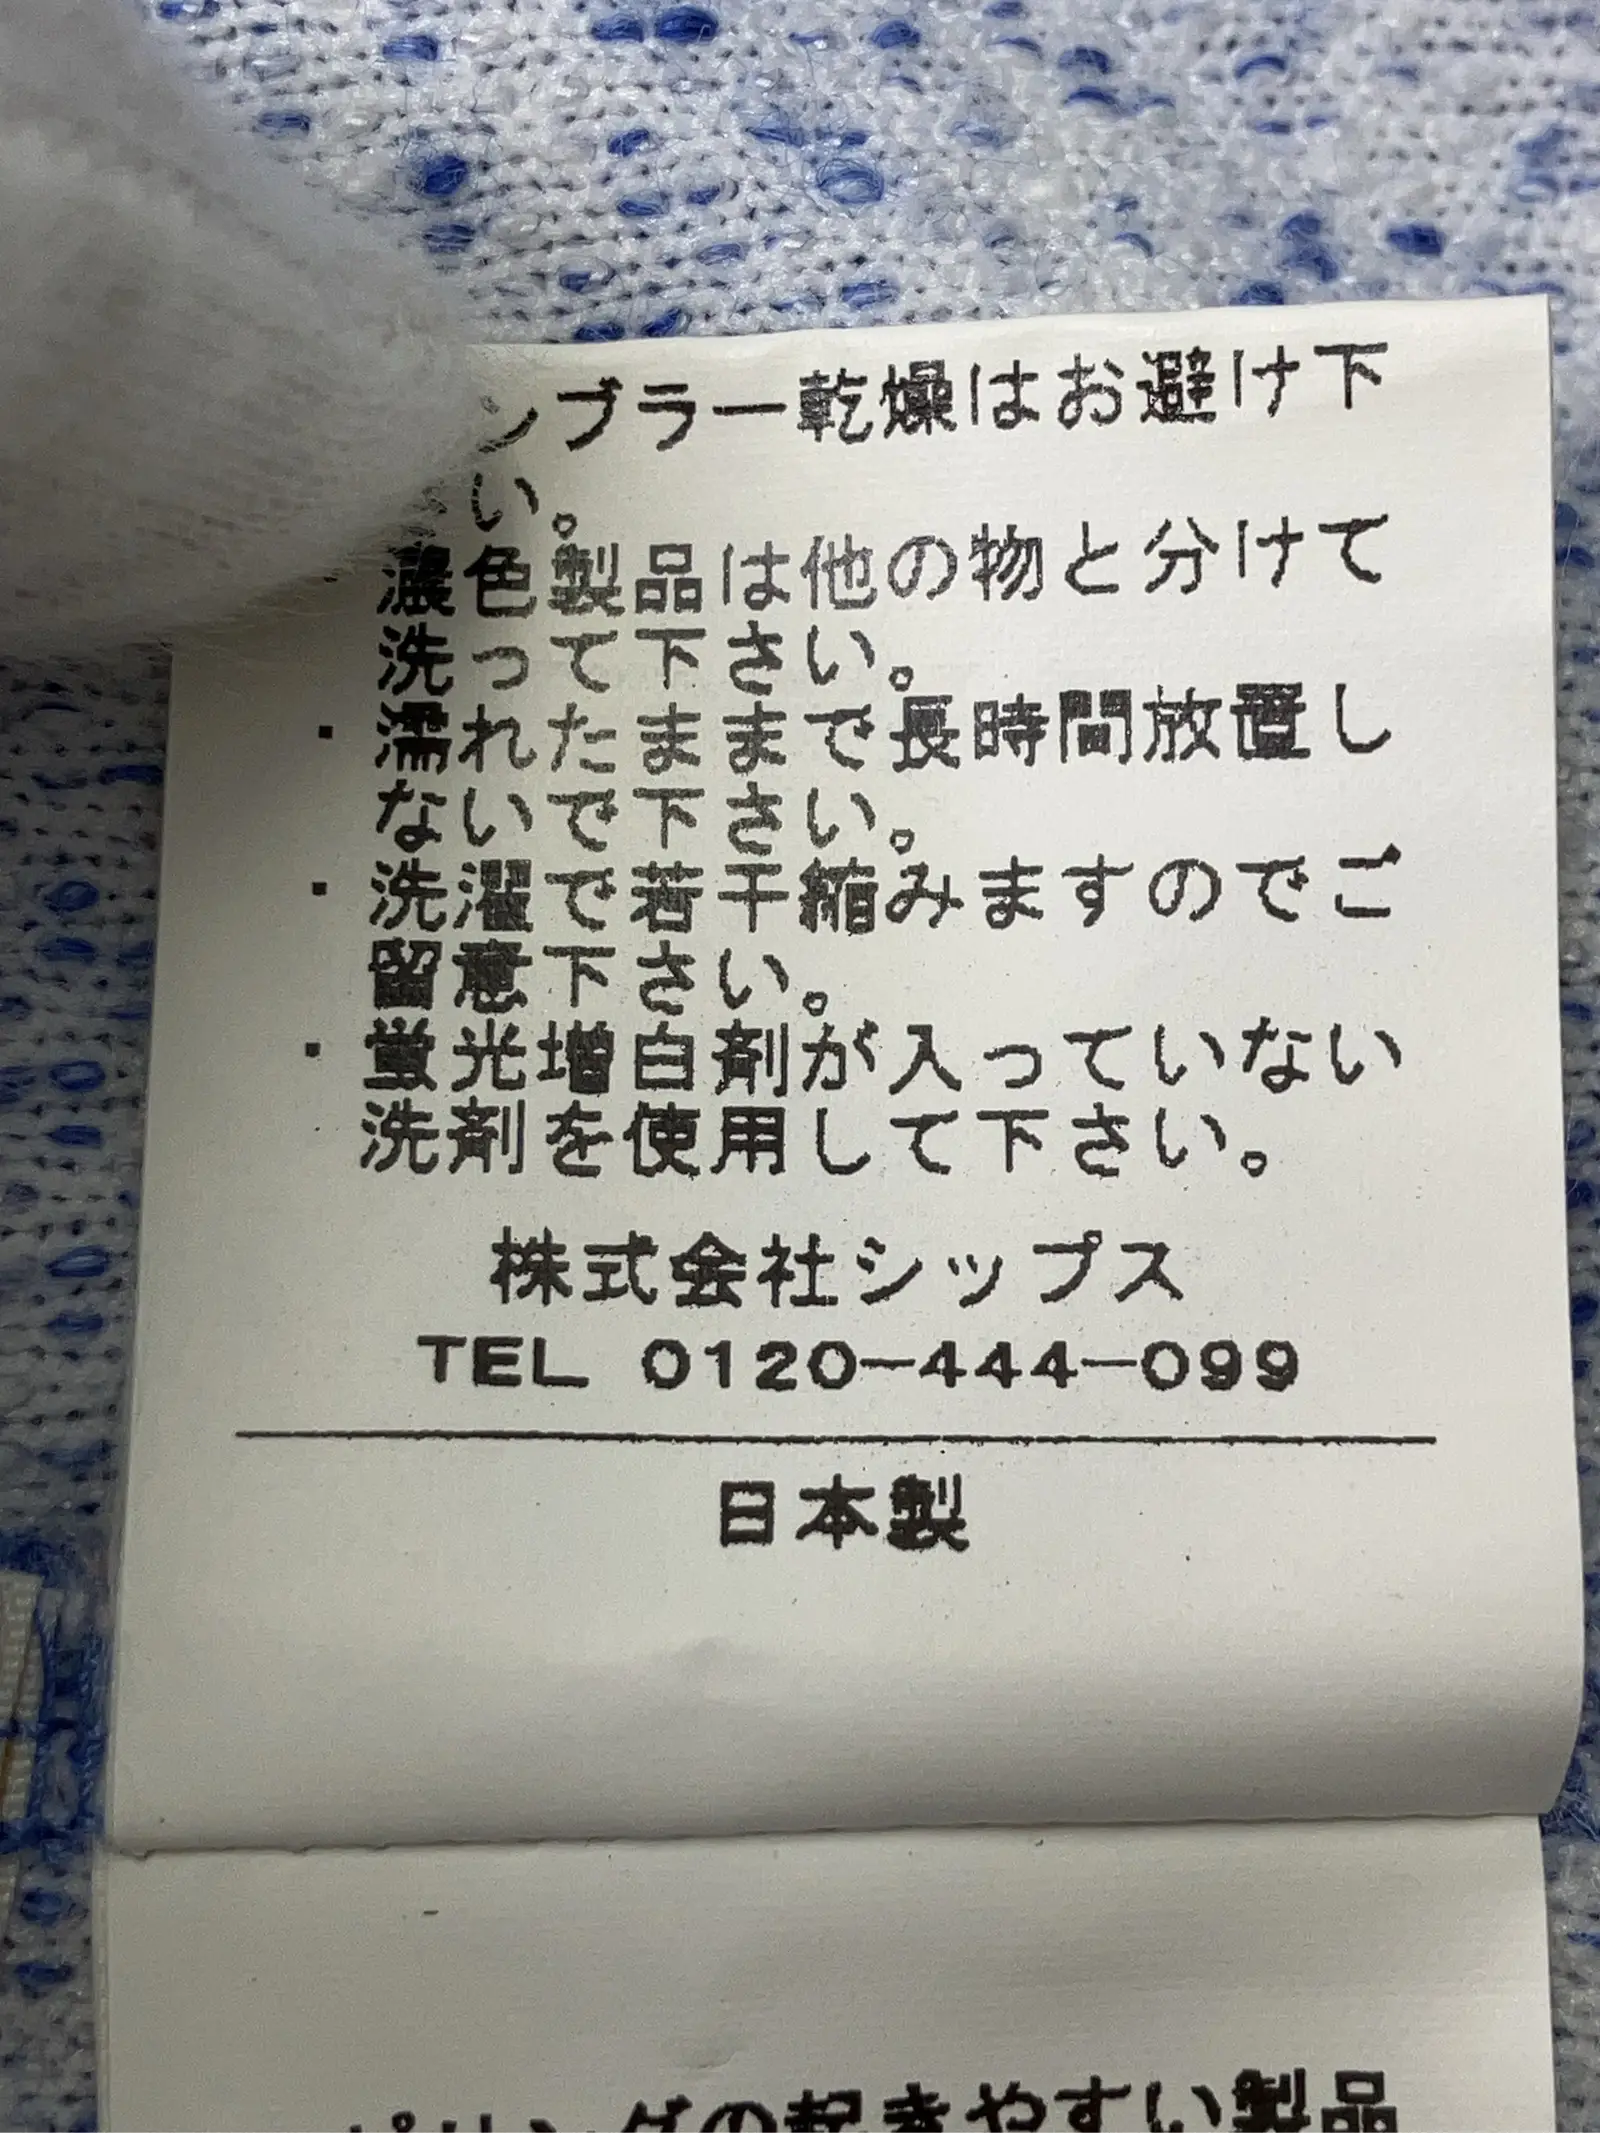 ンブラー乾燥はお避け下
い。
濃色製品は他の物と分けて
洗って下さい。
・濡れたままで長時間放置し
ないで下さい。
・洗濯で若干縮みますのでご
留意下さい。
・蛍光増白剤が入っていない
洗剤を使用して下さい。
株式会社シップス
TEL 0120-444-099
日本製
ピリングの起きやすい製品